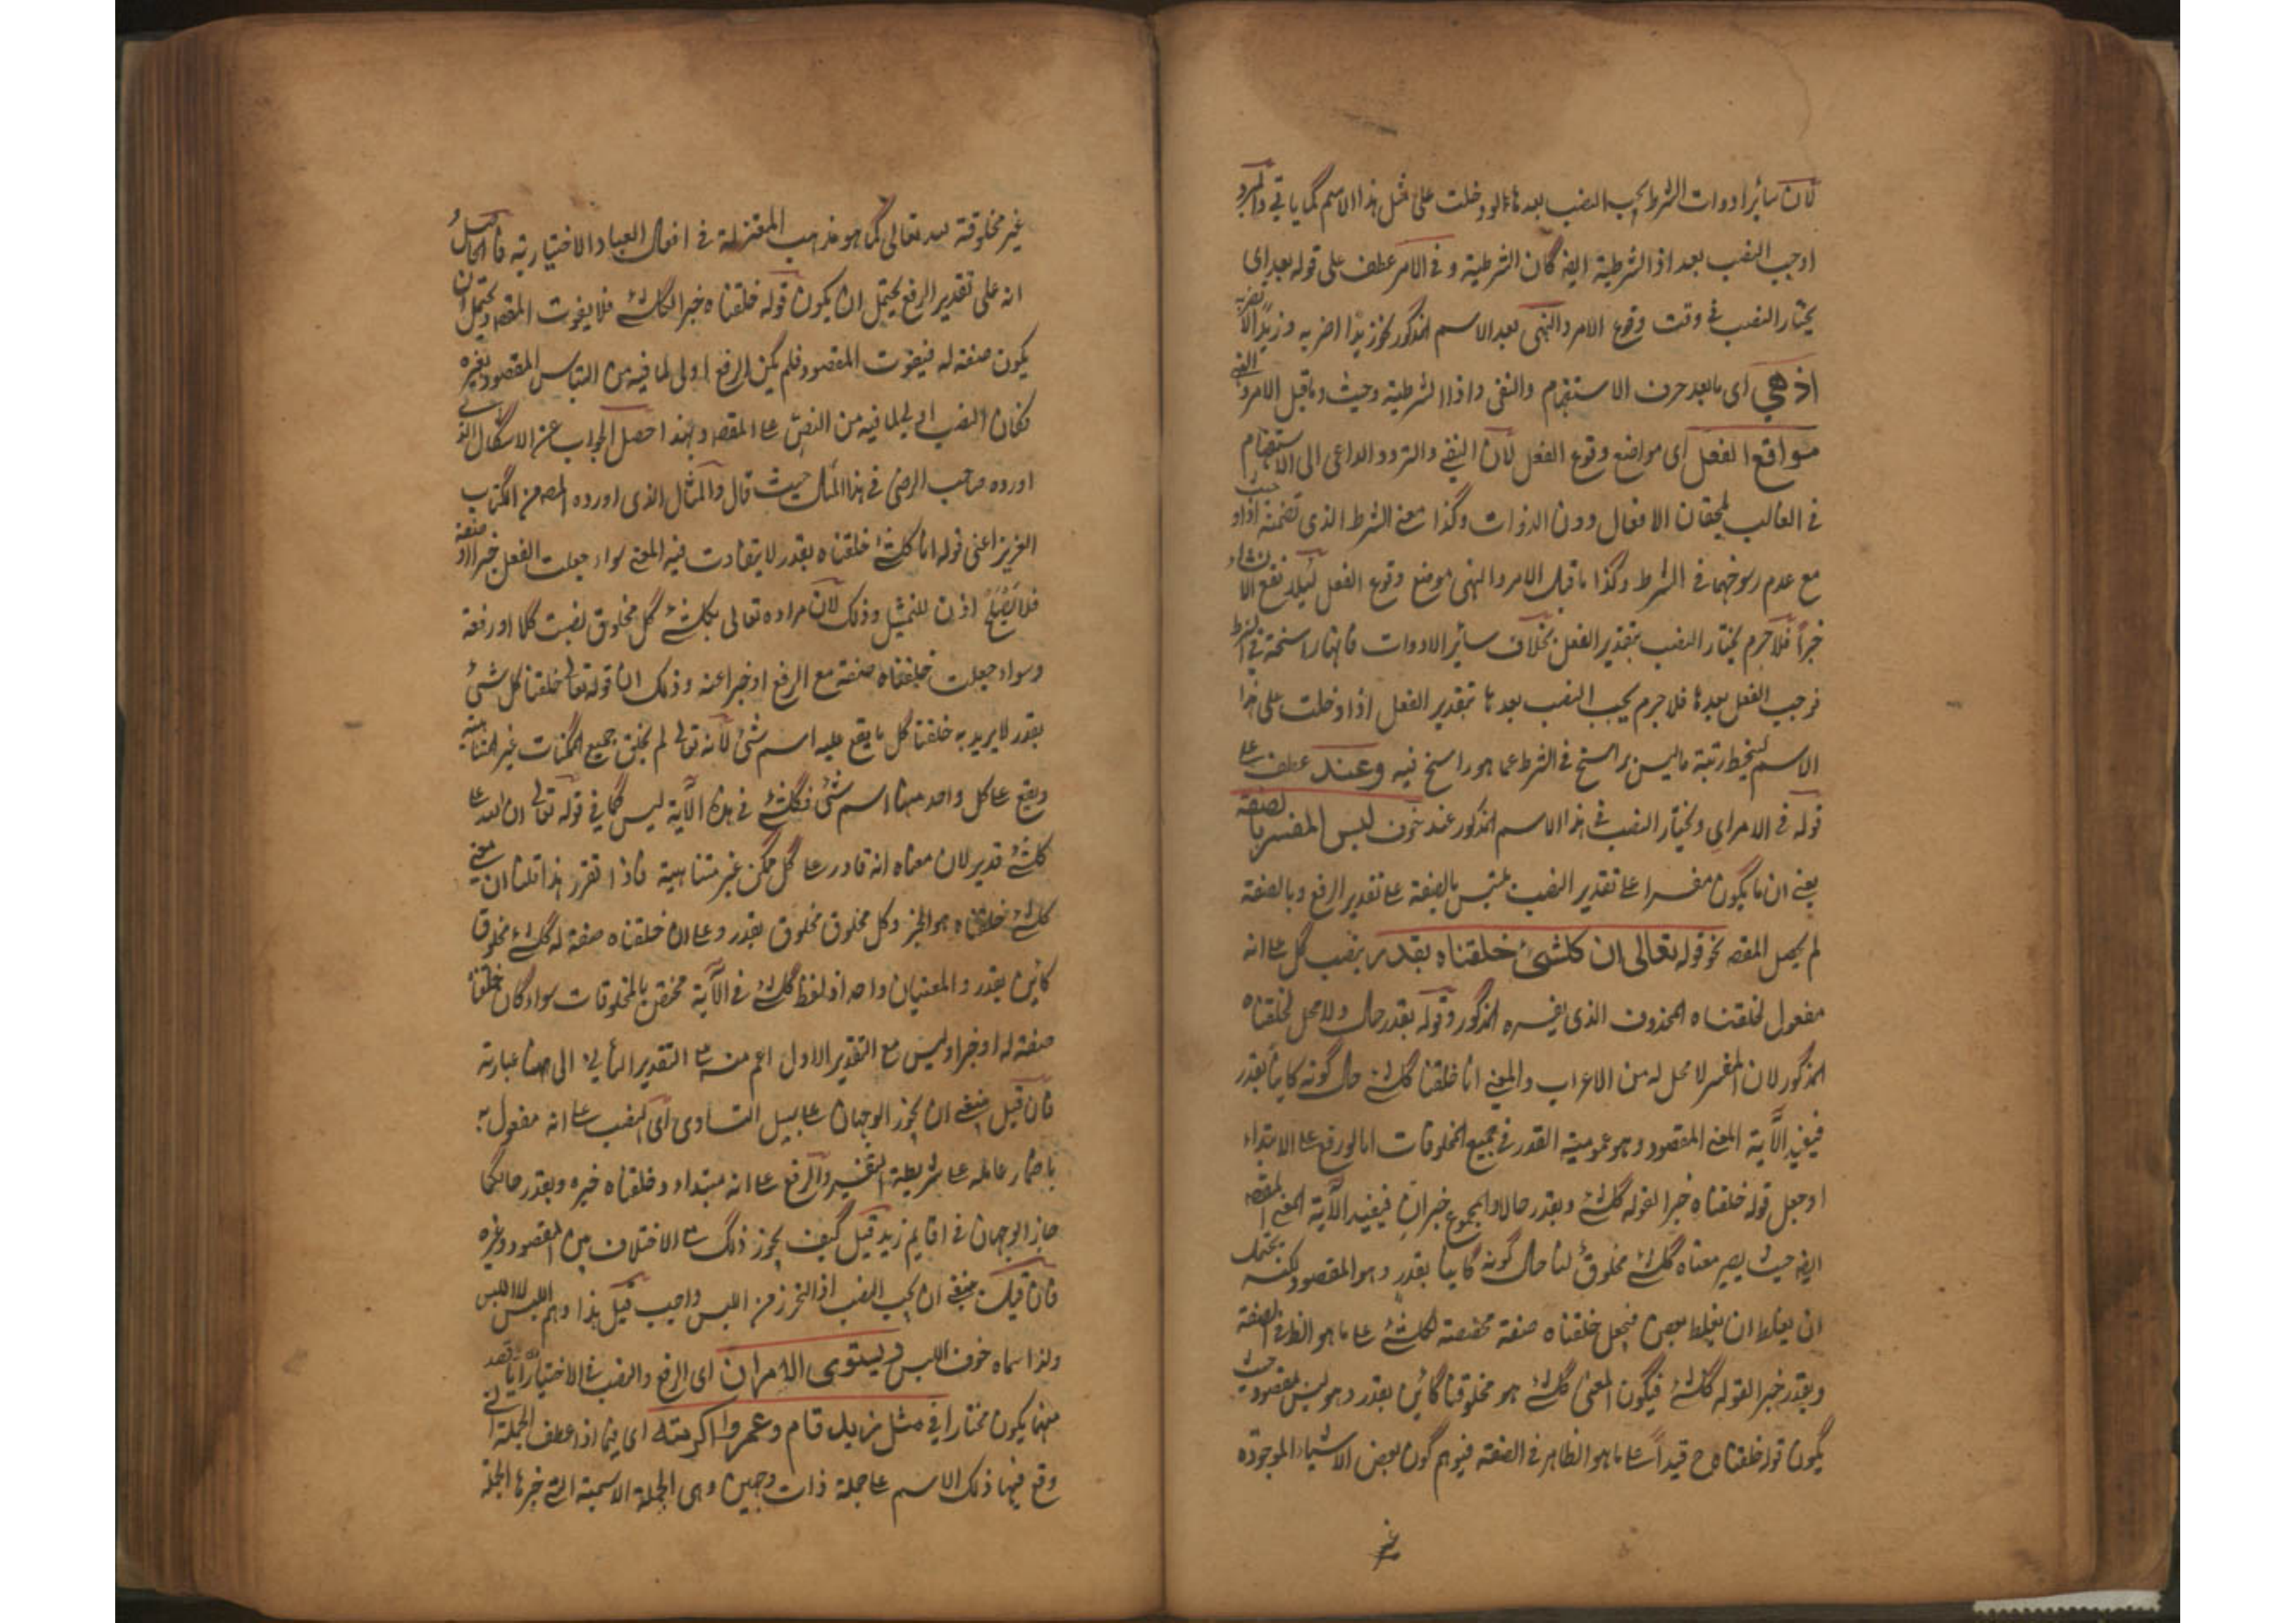 لان سائر ادوات الشرط يجب النصب بعدها لو دخلت على مثل هذا الاسم كما ياتي والمبرد
اوجب النصب بعد اذا الشرطية ايضا كان الشرطية وفي الامر عطف على قوله بعد اي
يختار النصب في وقت وقوع الامر والنهي بعد الاسم المذكور نحو زيدا اضربه وزيدا لا تضربه
اذ هي اي ما بعد حرف الاستفهام والنفي واذا الشرطية وحيث وما قبل الامر والنهي
مواقع الفعل اي مواضع وقوع الفعل لان النفي والتردد الداعي الى الاستفهام
في الغالب يلحقان الافعال دون الذوات وكذا معنى الشرط الذي تضمنه اذا وحيث
مع عدم رسوخهما في الشرط وكذا ما قبل الامر والنهي موضع وقوع الفعل لئلا يقع الانشاء
خبرا فلا جرم يختار النصب بتقدير الفعل بخلاف سائر الادوات فانها راسخة في الشرط
فوجب الفعل بعدها فلا جرم يجب النصب بعدها بتقدير الفعل اذا دخلت على هذا
الاسم لينحط رتبة ما ليس براسخ في الشرط عما هو راسخ فيه وعند عطف على
قوله في الامر اي ويختار النصب في هذا الاسم المذكور عند خوف لبس المفسر بالصفة
يعني ان ما يكون مفسرا على تقدير النصب يلتبس بالصفة على تقدير الرفع وبالصفة
لم يحصل المقصـ نحو قوله تعالى ان كلشئ خلقناه بقدر بنصب كل على انه
مفعول لخلقناه المحذوف الذي يفسره المذكور وقوله بقدر حال ولا محل لخلقناه
المذكور لان المفسر لا محل له من الاعراب والمعنى انا خلقنا كلشئ حال كونه كاينا بقدر
فيفيد الآية المعنى المقصود وهو عمومية القدر في جميع المخلوقات اما لو رفع على الابتداء
او جعل قوله خلقناه خبرا لقوله كلشئ وبقدر حالا والمجموع خبران فيفيد الآية المعنى المقصـ
ايضا حيث يصير معناه كلشئ مخلوق لنا حال كونه كاينا بقدر وهو المقصود لكنه يحتمل
ان يغلط بعض فيجعل خلقناه صفة مخصصة لكلشئ على ما هو الظـ في الصفة
وبقدر خبرا لقوله كلشئ فيكون المعنى كلشئ هو مخلوقنا كائن بقدر وهو ليس بمقصود حيث
يكون قوله خلقناه ح قيدا على ما هو الظاهر في الصفة فيوهم كون بعض الاشياء الموجودة
غير
غير مخلوقة لله تعالى كما هو مذهب المعتزلة في افعال العباد الاختيارية فالحاصل
انه على تقدير الرفع يحتمل ان يكون قوله خلقناه خبرا لكلشئ فلا يفوت المقصـ ويحتمل ان
يكون صفة له فيفوت المقصود فلم يكن الرفع اولى لما فيه من التباس المقصود بغيره
فكان النصب اولى لما فيه من النص على المقصـ وبهذا حصل الجواب عن الاشكال الذي
اورده صاحب الرضي في هذا المثال حيث قال والمثال الذي اورده المصـ من الكتاب
العزيز اعني قوله انا كلشئ خلقناه بقدر لا يتفاوت فيه المعنى سواء جعلت الفعل خبرا او صفة
فلا يصلح اذن للتمثيل وذلك لان مراده تعالى بكلشئ كل مخلوق نصبت كلا او رفعته
وسواء جعلت خلقناه صفة مع الرفع او خبرا عنه وذلك ان قوله تعالى خلقنا كل شئ
بقدر لا يريد به خلقنا كل ما يقع عليه اسم شئ لانه تعالى لم يخلق جميع الممكنات غير المتناهية
ويقع على كل واحد منها اسم شئ فكلشئ في هذه الآية ليس كما في قوله تعالى ان الله على
كلشئ قدير لان معناه انه قادر على كل ممكن غير متناهية فاذا تقرر هذا قلنا ان معنى
كلشئ خلقناه هو الخبر وكل مخلوق مخلوق بقدر وعلى ان خلقناه صفة له كلشئ مخلوق
كائن بقدر والمعنيان واحد اذ لفظ كلشئ في الآية مختص بالمخلوقات سواء كان خلقناه
صفة له او خبرا وليس مع التقدير الاول اعم منه مع التقدير الثاني الى هنا عبارته
فان قيل ينبغي ان يجوز الوجهان على سبيل التساوي اي النصب على انه مفعول به
باضمار عامله على شريطة التفسير والرفع على انه مبتداء وخلقناه خبره وبقدر حال كما
جاز الوجهان في اقايم زيد قيل كيف يجوز ذلك مع الاختلاف بين المقصود وغيره
فان قيل ينبغي ان يجب النصب اذ التحرز من اللبس واجب قيل هذا وهم اللبس لا اللبس
ولذا سماه خوف اللبس ويستوي الامران اي الرفع والنصب في الاختيار
منهما يكون مختارا في مثل زيد قام وعمروا اكرمته اي فيما اذا عطف الجملة التي
وقع فيها ذلك الاسم على جملة ذات وجهين وهي الجملة الاسمية التي خبرها الجملة